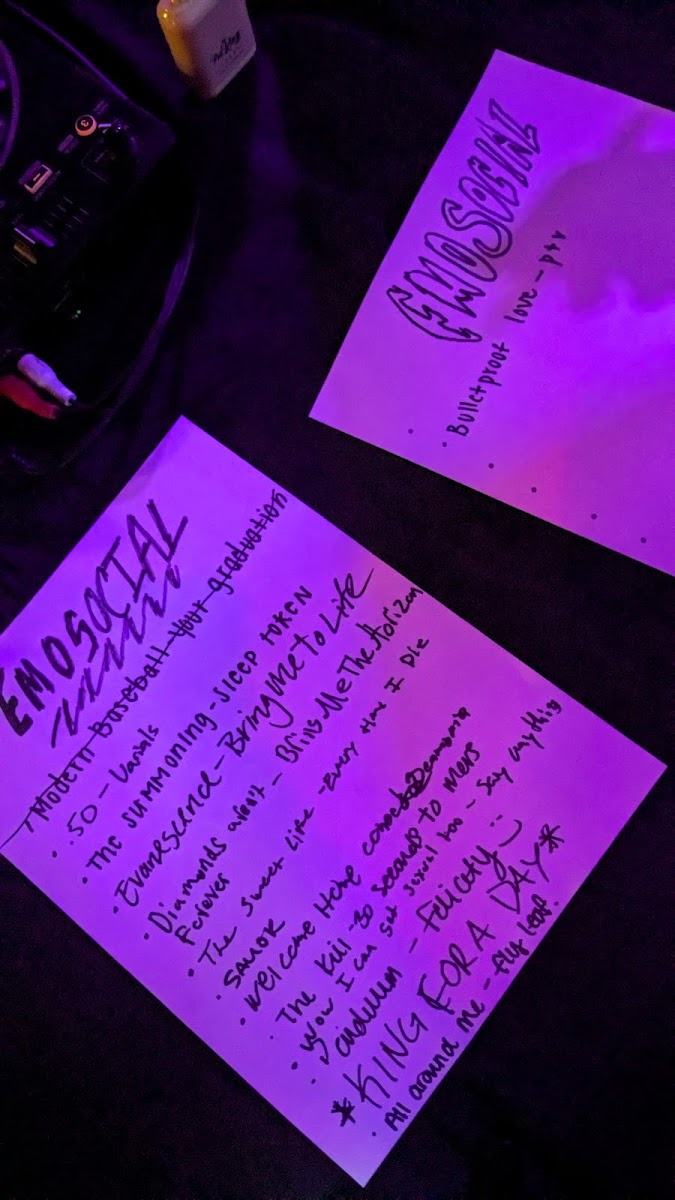 EMOSOCIAL
Modern Baseball your graduation
.50 - Varials
THE SUMMONING - SLEEP TOKEN
Evanescence - Bring me to Life
Diamonds aren't - Bring Me The Horizon
Forever
The Sweet Life - Every time I Die
SAMOK
Welcome Home
The Kill - 30 seconds to Mars
Wow I can get sexual too - Say anything
- Felicity
*KING FOR A DAY*
All around me - flyleaf.
EMOSOCIAL
Bulletproof love - ptv